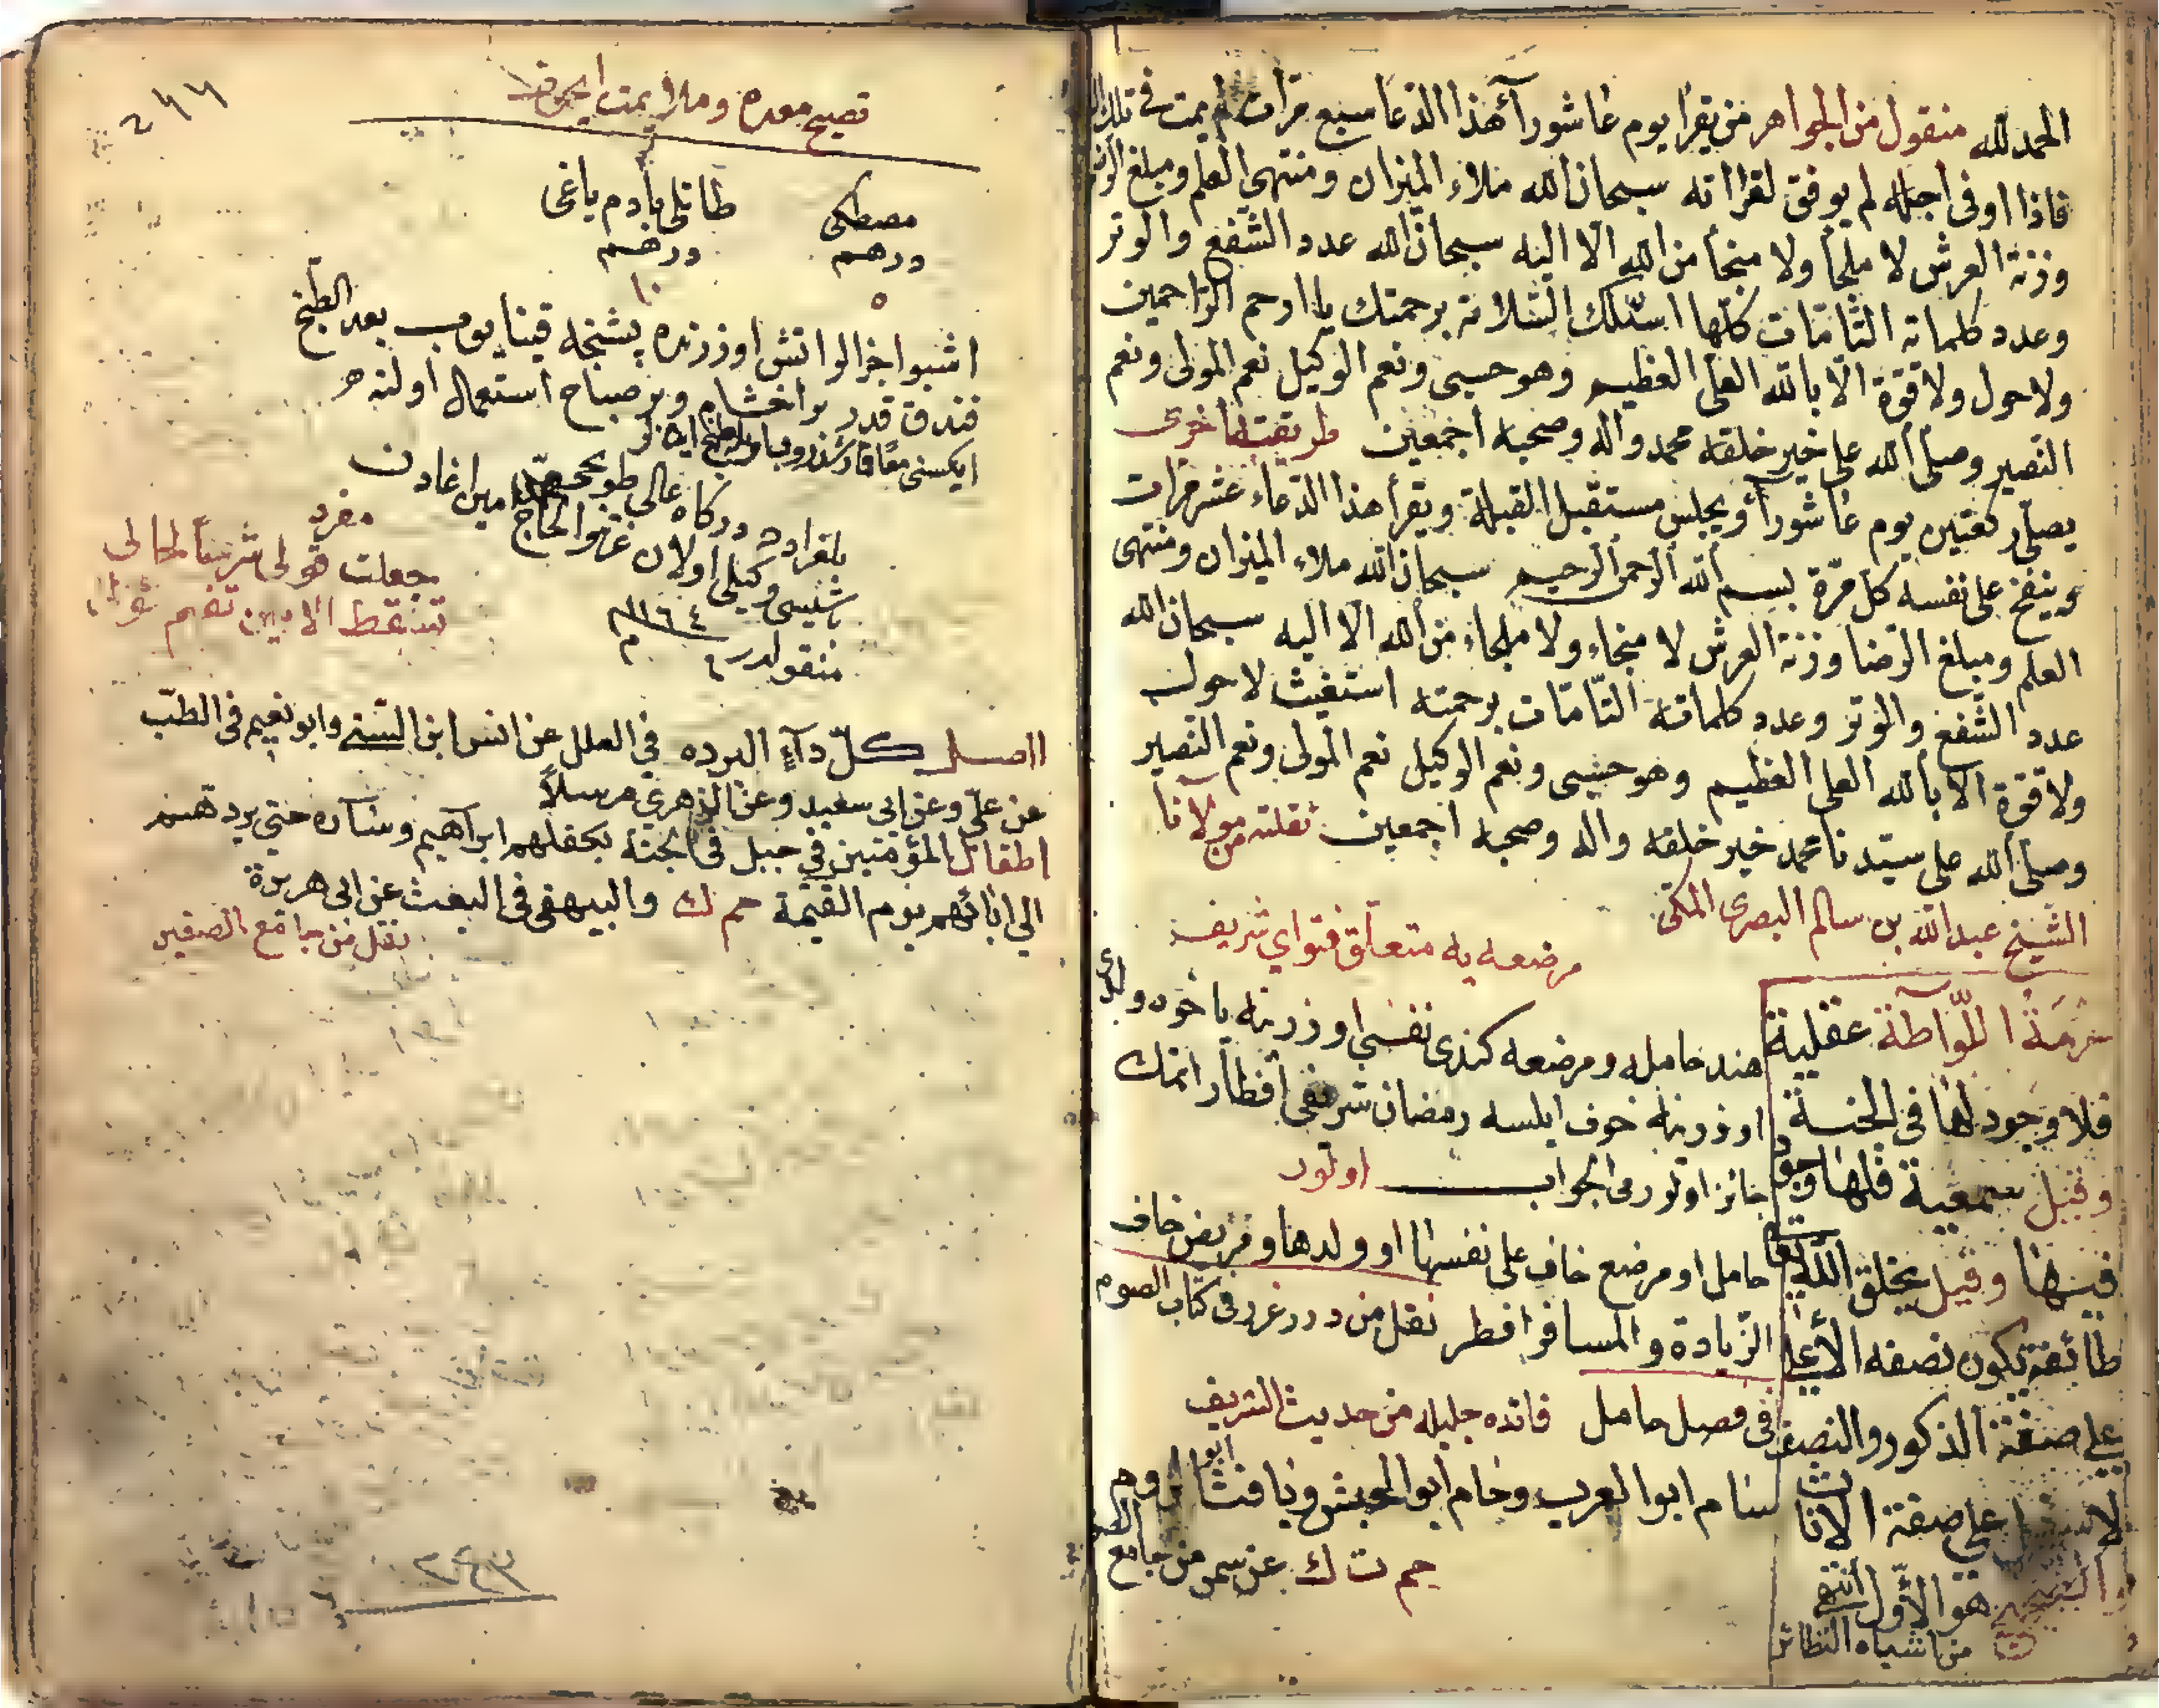 الحمد لله منقول من الجواهر من يقرأ يوم عاشورآ هذا الدعا سبع مرات لم يمت في تلك
فاذا اوفى اجله لم يوفق لقراأته سبحان الله ملاء الميزان ومنتهى العلم ومبلغ
وزنة العرش لا ملجأ ولا منجأ من الله الا اليه سبحان الله عدد الشفع والوتر
وعدد كلماته التامات كلها اسئلك السلامة برحمتك يا ارحم الراحمين
ولا حول ولا قوة الا بالله العلي العظيم وهو حسبي ونعم الوكيل نعم المولى ونعم
النصير وصلى الله على خير خلقه محمد واله وصحبه اجمعين طريقة اخرى
يصلى ركعتين يوم عاشورآ ويجلس مستقبل القبلة ويقرأ هذا الدعاء عشر مرات
وينفخ على نفسه كل مرة بسم الله الرحمن الرحيم سبحان الله ملاء الميزان ومنتهى
العلم ومبلغ الرضا وزنة العرش لا منجاء ولا ملجاء من الله الا اليه سبحان الله
عدد الشفع والوتر وعدد كلماته التامات برحمته استغيث لا حول
ولا قوة الا بالله العلي العظيم وهو حسبي ونعم الوكيل نعم المولى ونعم النصير
وصلى الله على سيدنا محمد خير خلقه واله وصحبه اجمعين نقلته من مولانا
الشيخ عبد الله بن سالم البصرى المكى
مرضعه يه متعلق فتواي شريف
هند حامله ومرضعه كندى نفسي اوزرينه ياخود ولدى
اوزرينه خوف ايلسه رمضان شريفى افطار اتمك
جائز اولورمى الجواب اولور
حامل او مرضع خاف على نفسها او ولدها ومريض خاف
الزيادة والمسافر افطر نقل من درر غرر فى كتاب الصوم
فى فصل حامل فائده جليله من حديث الشريف
سام ابو العرب وحام ابو الحبش ويافث ابو الروم
حم ت ك عن سمرة من جامع
حرمة اللواطة عقلية
فلا وجود لها في الجنة
وقيل سمعية فلها وجود
فيها وقيل يخلق الله تعا
طائفة يكون نصفه الأعلى
على صفة الذكور والنصف
الاسفل على صفة الاناث
والصحيح هو الاول انتهى
من اشباه النظائر
٢٤٤
مصطكى طاتلى بادم ياغى
درهم درهم
٥ ١٠
اشبو اجزالر اتش اوزرنده پشنجه قينايوب بعد الطبخ
فندق قدر بر اخشام وبر صباح استعمال اولنه
دركاه عالى
وكيلى اولان الحاج امين اغادن
منقولدر
١١٦٤
مفرد
اصل كل دآء البرده في العلل عن انس ابن السني وابو نعيم فى الطب
عن علي وعن ابى سعيد وعن الزهري مرسلاً
اطفال المؤمنين في جبل فى الجنة يكفلهم ابراهيم وساره حتى يردهم
الى ابائهم يوم القيمة حم ك والبيهقى فى البعث عن ابى هريرة
نقل من جامع الصغير